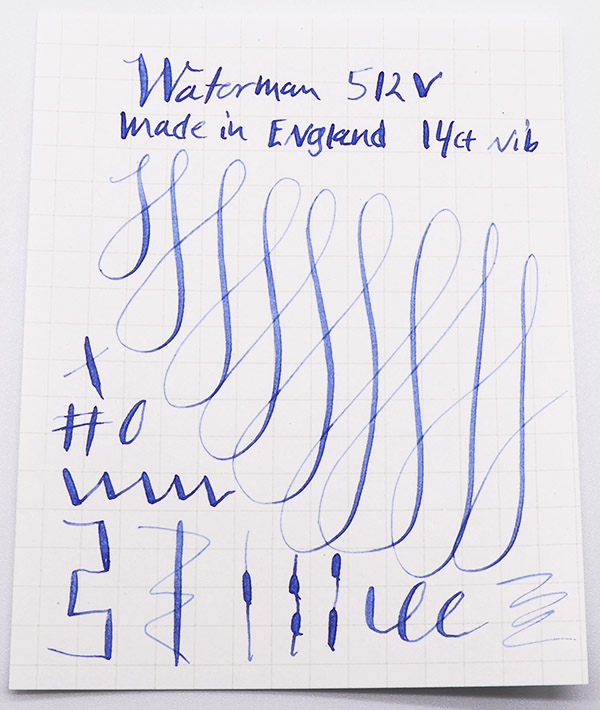 Waterman 512V
made in England 14ct Nib
# 0